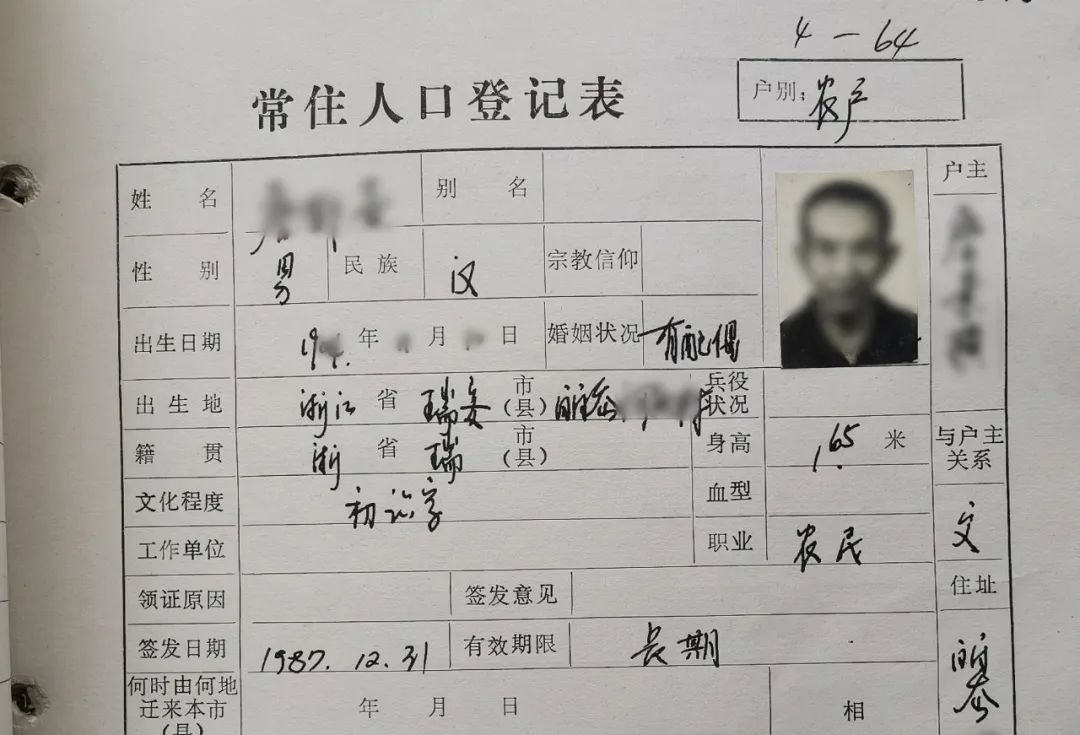 4-64
常住人口登记表
户别：农户
姓名 别名 户主
性别 男 民族 汉 宗教信仰
出生日期 19 年 月 日 婚姻状况 有配偶
出生地 浙江 省 瑞安 市（县） 兵役状况
籍贯 浙 省 瑞 市（县） 身高 1.65 米 与户主关系
文化程度 初识字 血型
工作单位 职业 农民 父
领证原因 签发意见 住址
签发日期 1987.12.31 有效期限 长期
何时由何地迁来本市（县） 年 月 日 相